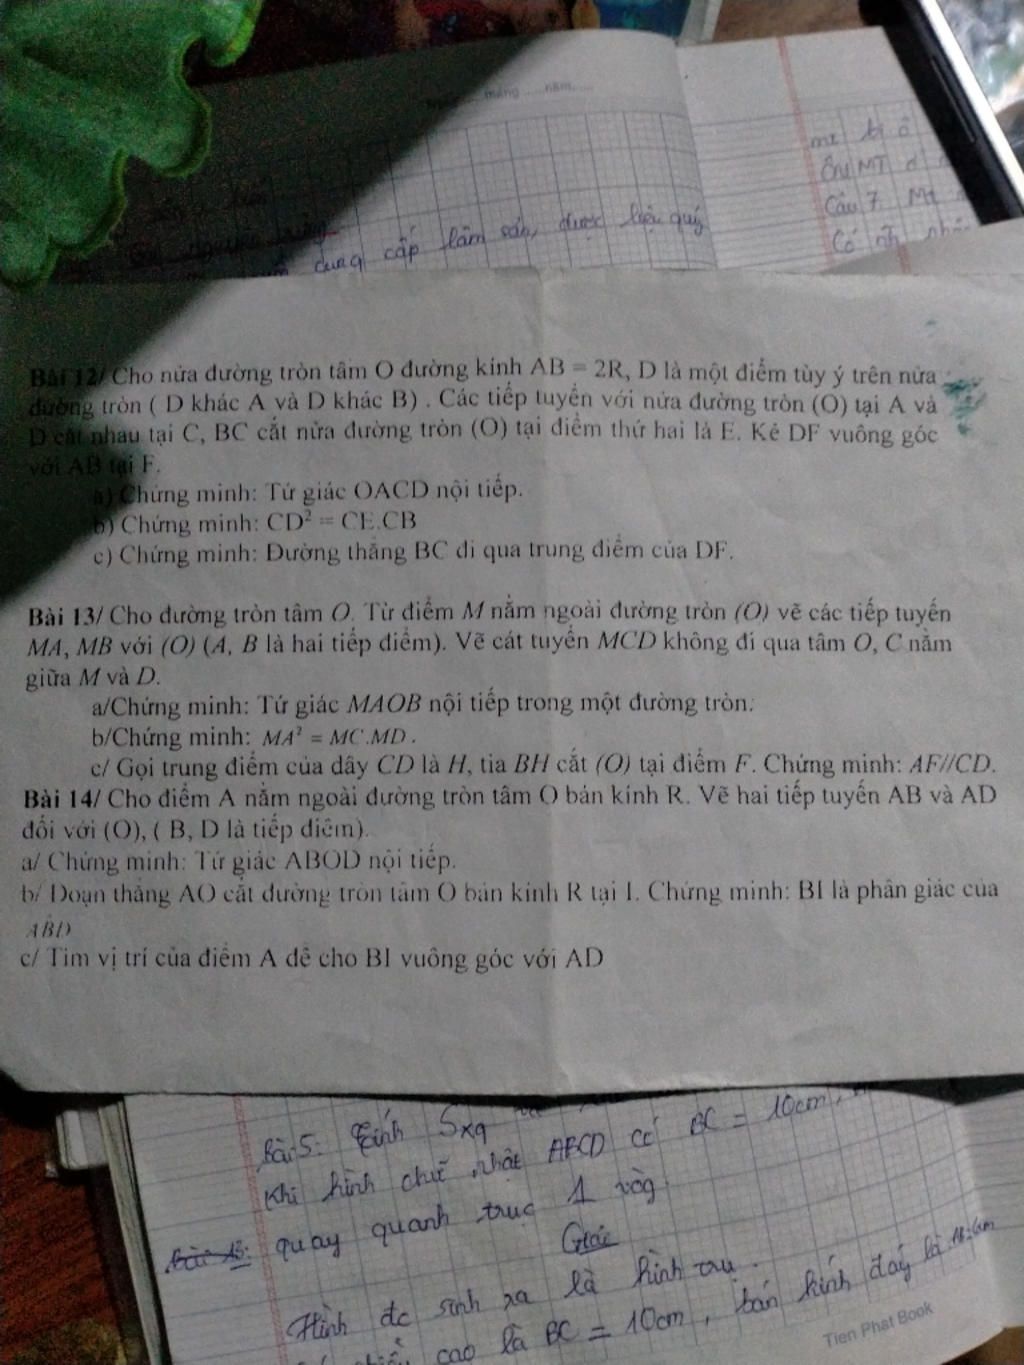 tháng ..... năm.....
mt bị ô
Câu 7. Mt
Có nh
cung cấp lâm sản, dược liệu quý
Bài 12/ Cho nửa đường tròn tâm O đường kính AB = 2R, D là một điểm tùy ý trên nửa
đường tròn ( D khác A và D khác B) . Các tiếp tuyến với nửa đường tròn (O) tại A và
D cắt nhau tại C, BC cắt nửa đường tròn (O) tại điểm thứ hai là E. Kẻ DF vuông góc
với AB tại F.
a) Chứng minh: Tứ giác OACD nội tiếp.
b) Chứng minh: CD² = CE.CB
c) Chứng minh: Đường thẳng BC đi qua trung điểm của DF.
Bài 13/ Cho đường tròn tâm O. Từ điểm M nằm ngoài đường tròn (O) vẽ các tiếp tuyến
MA, MB với (O) (A, B là hai tiếp điểm). Vẽ cát tuyến MCD không đi qua tâm O, C nằm
giữa M và D.
a/Chứng minh: Tứ giác MAOB nội tiếp trong một đường tròn.
b/Chứng minh: MA² = MC.MD .
c/ Gọi trung điểm của dây CD là H, tia BH cắt (O) tại điểm F. Chứng minh: AF//CD.
Bài 14/ Cho điểm A nằm ngoài đường tròn tâm O bán kính R. Vẽ hai tiếp tuyến AB và AD
đối với (O), ( B, D là tiếp điểm).
a/ Chứng minh: Tứ giác ABOD nội tiếp.
b/ Đoạn thẳng AO cắt đường tròn tâm O bán kính R tại I. Chứng minh: BI là phân giác của
ABD
c/ Tìm vị trí của điểm A để cho BI vuông góc với AD
Bài 5: Tính Sxq
Khi hình chữ nhật ABCD có BC = 10cm,
quay quanh trục 1 vòg
Giải
Hình đc sinh ra là hình trụ.
cao là BC = 10cm, bán kính đáy là AB=6cm
Tien Phat Book